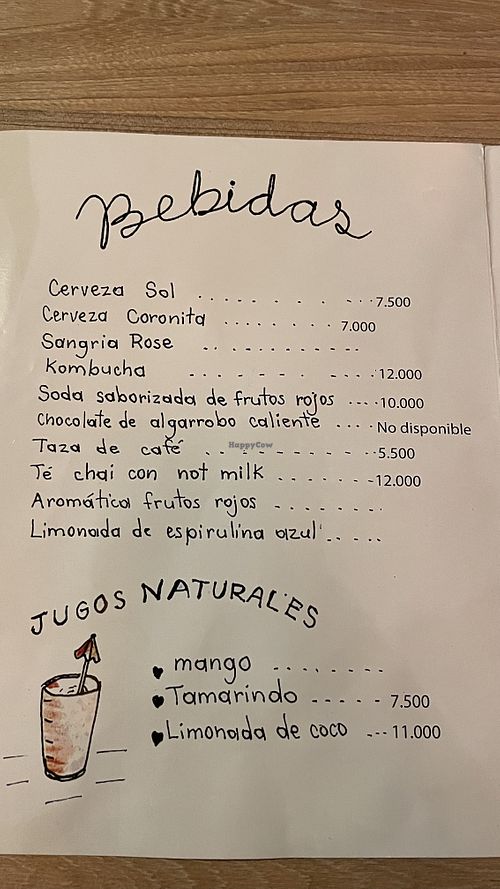 Bebidas
Cerveza Sol . . . . . . . . . 7.500
Cerveza Coronita . . . . . . . . 7.000
Sangria Rose . . . . . . . . . . .
Kombucha . . . . . . . . . . 12.000
Soda saborizada de frutos rojos . . . . 10.000
Chocolate de algarrobo caliente . . . . No disponible
Taza de café . . . . . . . . . . . 5.500
HappyCow
Té chai con not milk - - - - - - - 12.000
Aromática frutos rojos - - - - - - - .
Limonada de espirulina azul . . . . .
JUGOS NATURALES
mango . . . . . . . .
Tamarindo - - - - - 7.500
Limonada de coco - - - 11.000